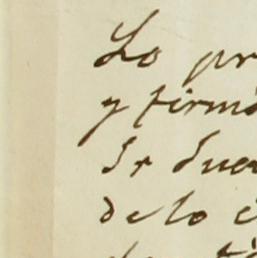 Lo pr
y firma
Sr Jue
de lo c